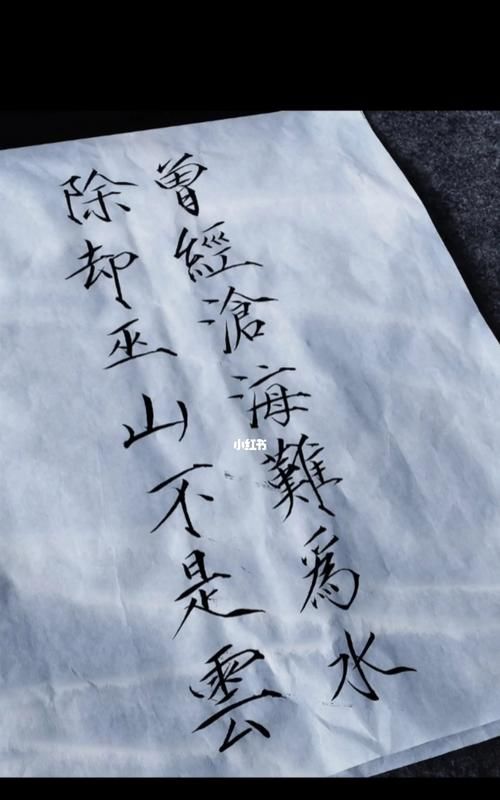 曾經滄海難為水
除却巫山不是雲
小红书